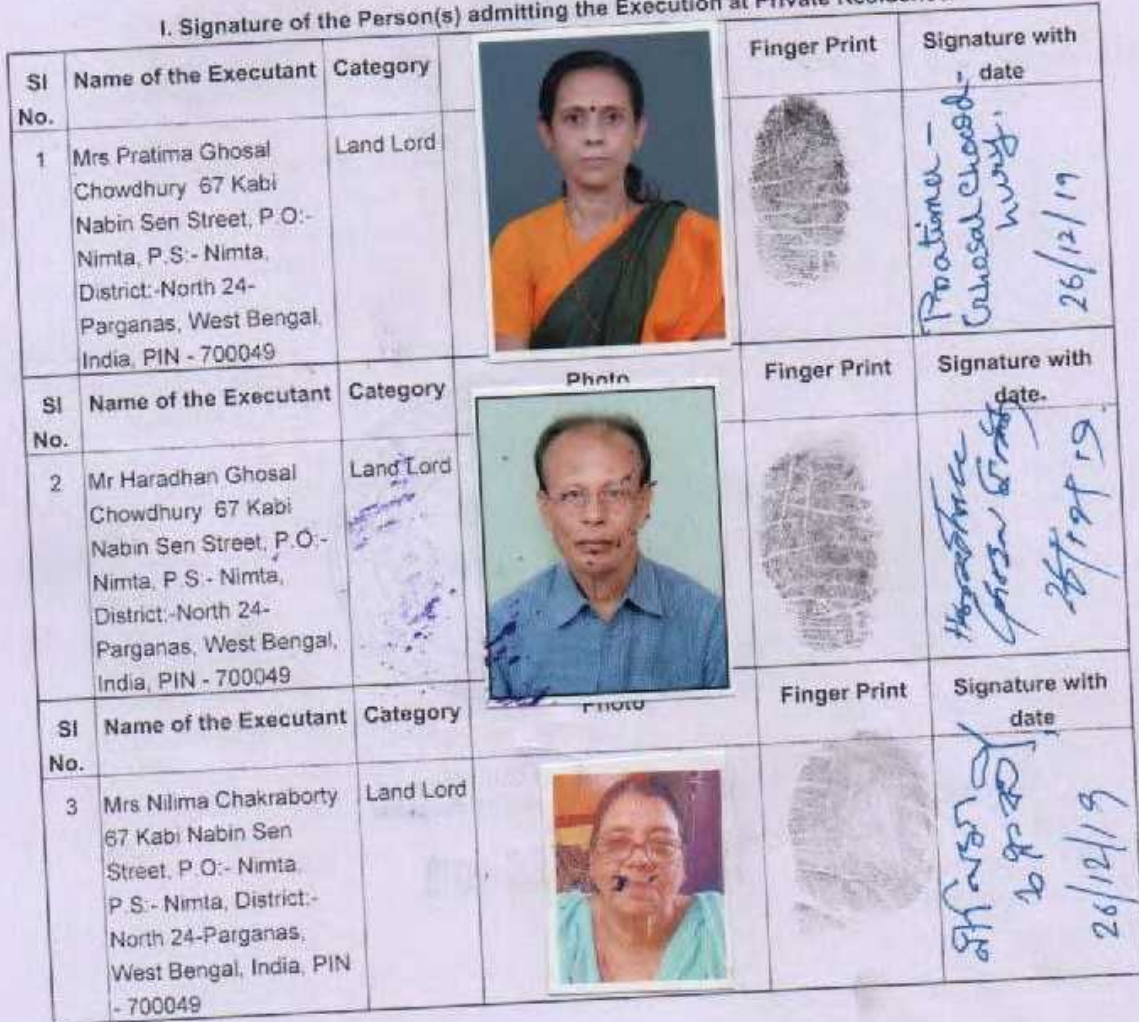 I. Signature of the Person(s) admitting the Execution at Private
SI No. Name of the Executant Category Finger Print Signature with date
1 Mrs Pratima Ghosal Land Lord
Chowdhury 67 Kabi
Nabin Sen Street, P.O:-
Nimta, P.S:- Nimta,
District:-North 24-
Parganas, West Bengal,
India, PIN - 700049
Pratima -
Ghosal Chowd-
hury.
26/12/19
SI No. Name of the Executant Category Photo Finger Print Signature with date
2 Mr Haradhan Ghosal Land Lord
Chowdhury 67 Kabi
Nabin Sen Street, P.O:-
Nimta, P.S:- Nimta,
District:-North 24-
Parganas, West Bengal,
India, PIN - 700049
SI No. Name of the Executant Category Photo Finger Print Signature with date
3 Mrs Nilima Chakraborty Land Lord
67 Kabi Nabin Sen
Street, P.O:- Nimta,
P.S:- Nimta, District:-
North 24-Parganas,
West Bengal, India, PIN
- 700049
26/12/19